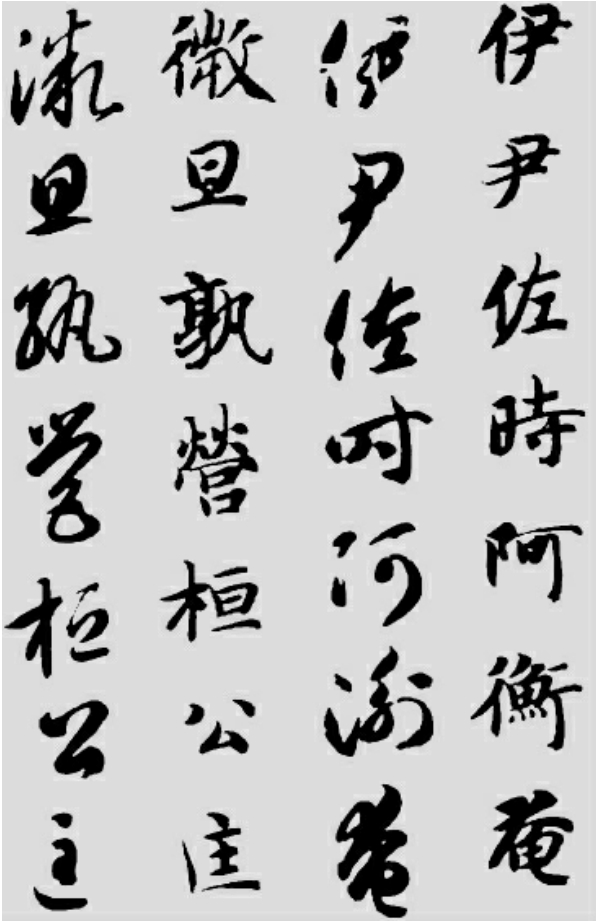 伊尹佐時阿衡奄
伊尹佐時阿衡奄
微旦孰營桓公匡
微旦孰營桓公匡